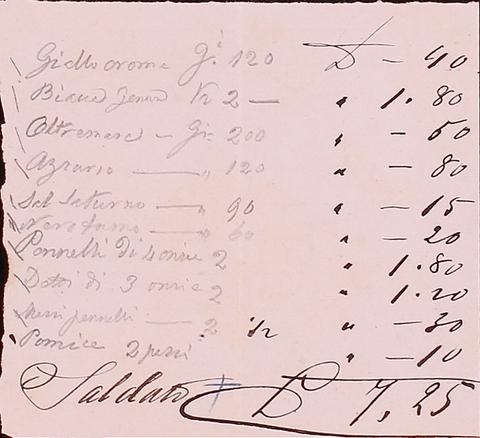 Giallo cromo Gi 120 £ - 40
Biacca Jenna K 2 — " 1.80
Oltremare - Gi. 200 " - 60
Azzurro — " 120 " - 80
Sal Saturno — " 90 " - 15
Nero fumo — " 60 " - 20
Pennelli di 4 oncie 2 " 1.80
Detti di 3 oncie 2 " 1.20
Mezzi pennelli — 2 " - 30
Pomice 2 pezzi " - 10
Saldato £ 7,25